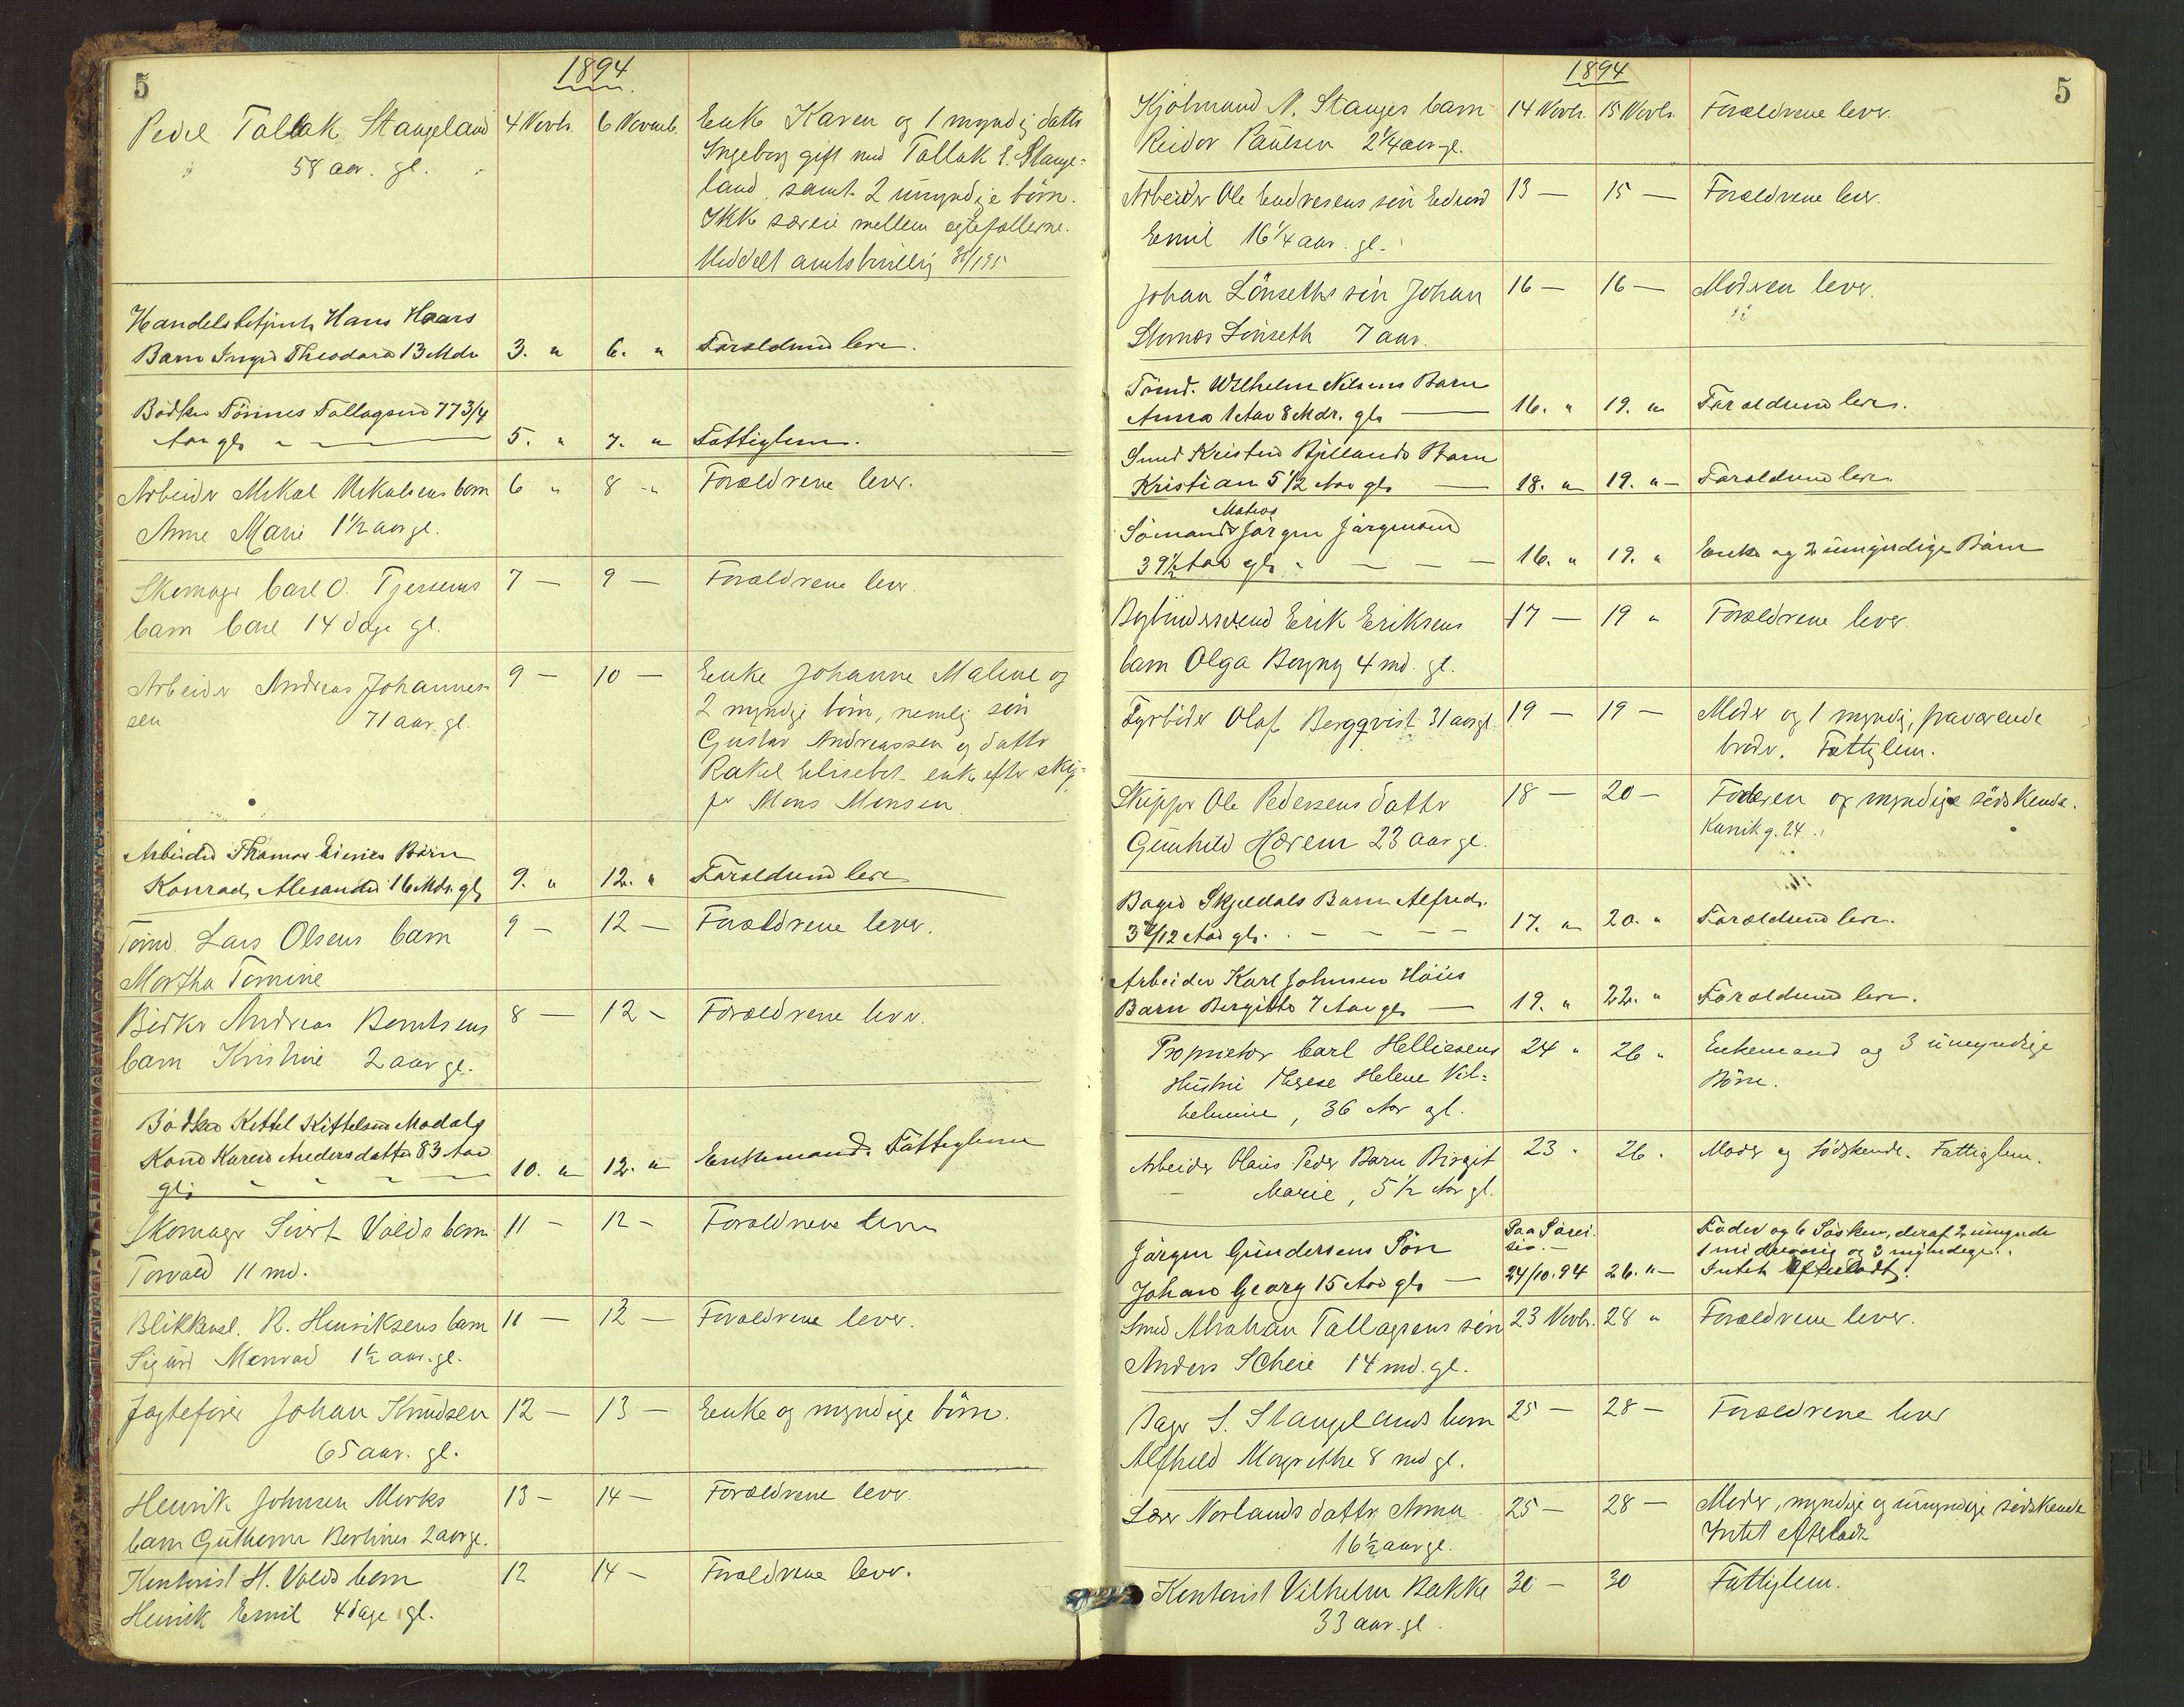 5
1894
Peder Tollak Stangeland 4 Novb. 6 Novemb. Enke Karen og 1 myndig datter
58 aar. gl. Ingeborg gift med Tollak E. Stange-
land, samt 2 umyndige börn.
Ikke særeie mellem egtefællerne.
Meddelt amtsbevilling
Handelsbetjent Hans Haars
Barn Inga Theodora 13 Mdr 3. " 6. " Forældrene lever.
Bödker Tönnes Tallagsen 77 3/4
Aar gl. 5. " 7. " Fattiglem.
Arbeider Mikal Mikalsens barn 6 " 8 " Forældrene lever.
Anne Marie 1 1/2 aar gl.
Skomager Carl O. Tjersens 7 — 9 — Forældrene lever
barn Carl 14 dage gl.
Arbeider Andreas Johannes- 9 — 10 — Enke Johanne Malene og
sen 71 aar. gl. 2 myndige börn, nemlig sön
Gustav Andreassen og datter
Rakel Elisebet enke efter skip-
per Mons Monsen.
Arbeider Thomas Barn
Konrad Alexander 16 Mdr. gl. 9. " 12. " Forældrene lever
Tömd. Lars Olsens barn 9 — 12 — Forældrene lever.
Martha Tomine
Bödker Andreas Berntsens 8 — 12 — Forældrene lever.
barn Kristine 2 aar gl.
Bödker Kettel Kittelsen Modals
Kone Karen Andersdatter 83 Aar 10. " 12. " Enkemand. Fattiglem
gl.
Skomager Sivert Valds barn 11 — 12 — Forældrene lever
Torvald 11 md.
Blikkensl. R. Henriksens barn 11 — 12 — Forældrene lever.
Sigurd Monrad 1 1/2 aar. gl.
Jagtefører Johan Knudsen 12 — 13 — Enke og myndige börn.
65 aar. gl.
Henrik Johnsen Morks 13 — 14 — Forældrene lever.
barn Guthorm Bertines 2 aar gl.
Kontorist H. Valds barn 12 14 — Forældrene lever.
Henrik Emil 4 dage gl.
1894
5
Kjølmand N. Stanges barn 14 Novb. 15 Novb. Forældrene lever.
Reidar Paulsen 2 1/4 aar gl.
Arbeider Ole Endresens sön Edvard 13 — 15 — Forældrene lever.
Emil 16 1/4 aar. gl.
Johan Lönseths sön Johan 16 — 16 — Moderen lever.
Lönseth 7 aar.
Tömd. Wilhelm Nilsens Barn
Anna 1 Aar 8 Mdr. gl. 16. " 19. " Forældrene lever.
Smed Kristen Bjellands Barn
Kristian 5 1/2 Aar gl. 18. " 19. " Forældrene lever
Matros
Sömand Jörgen Jörgensen
39 1/2 Aar gl. 16. " 19. " Enke og 2 umyndige Börn
Bogbindersvend Erik Eriksens 17 — 19 " Forældrene lever.
barn Olga Borgny 4 md. gl.
Fyrböder Olaf Bergqvist 31 aar gl. 19 — 19 — Moder og 1 myndig, fraværende
broder. Fattiglem.
Skipper Ole Pedersens datter 18 — 20 — Faderen og myndige södskende.
Gunhild Hærem 23 aar gl. Kanik g. 24.
Bager Skjeldals Barn Alfred.
3 /12 Aar gl. 17. " 20. " Forældrene lever.
Arbeider Karl Johnsen Höies
Barn Bergitte 7 Aar gl. 19. " 22. " Forældrene lever.
Proprietær Carl Helliesens 24 " 26 " Enkemand og 3 umyndige
Hustru Therese Helene Vil- Börn.
helmine, 36 Aar gl.
Arbeider Olaus Peder Barn Birgit 23 " 26 " Moder og södskende. Fattiglem.
Marie, 5 1/2 Aar gl.
Jörgen Gundersens Sön Paa Fader og 6 Sösken, deraf 2 umyndi
1 mindreaarig og 3 myndige.
Johan Georg 15 Aar gl. — 24/10.94 26. " Intet Efterladt.
Smed Abraham Tallagsens sön 23 Novb. 28 " Forældrene lever.
Anders Scheie 14 md. gl.
Bager S. Stangelands barn 25 — 28 — Forældrene lever
Alfhild Margrethe 8 md gl.
Lærer Norlands datter Anna 25 — 28 — Moder, myndige og umyndige södskende
16 1/2 aar gl. Intet efterladt
Kontorist Vilhelm Bakke 30 — 30 Fattiglem.
33 aar. gl.